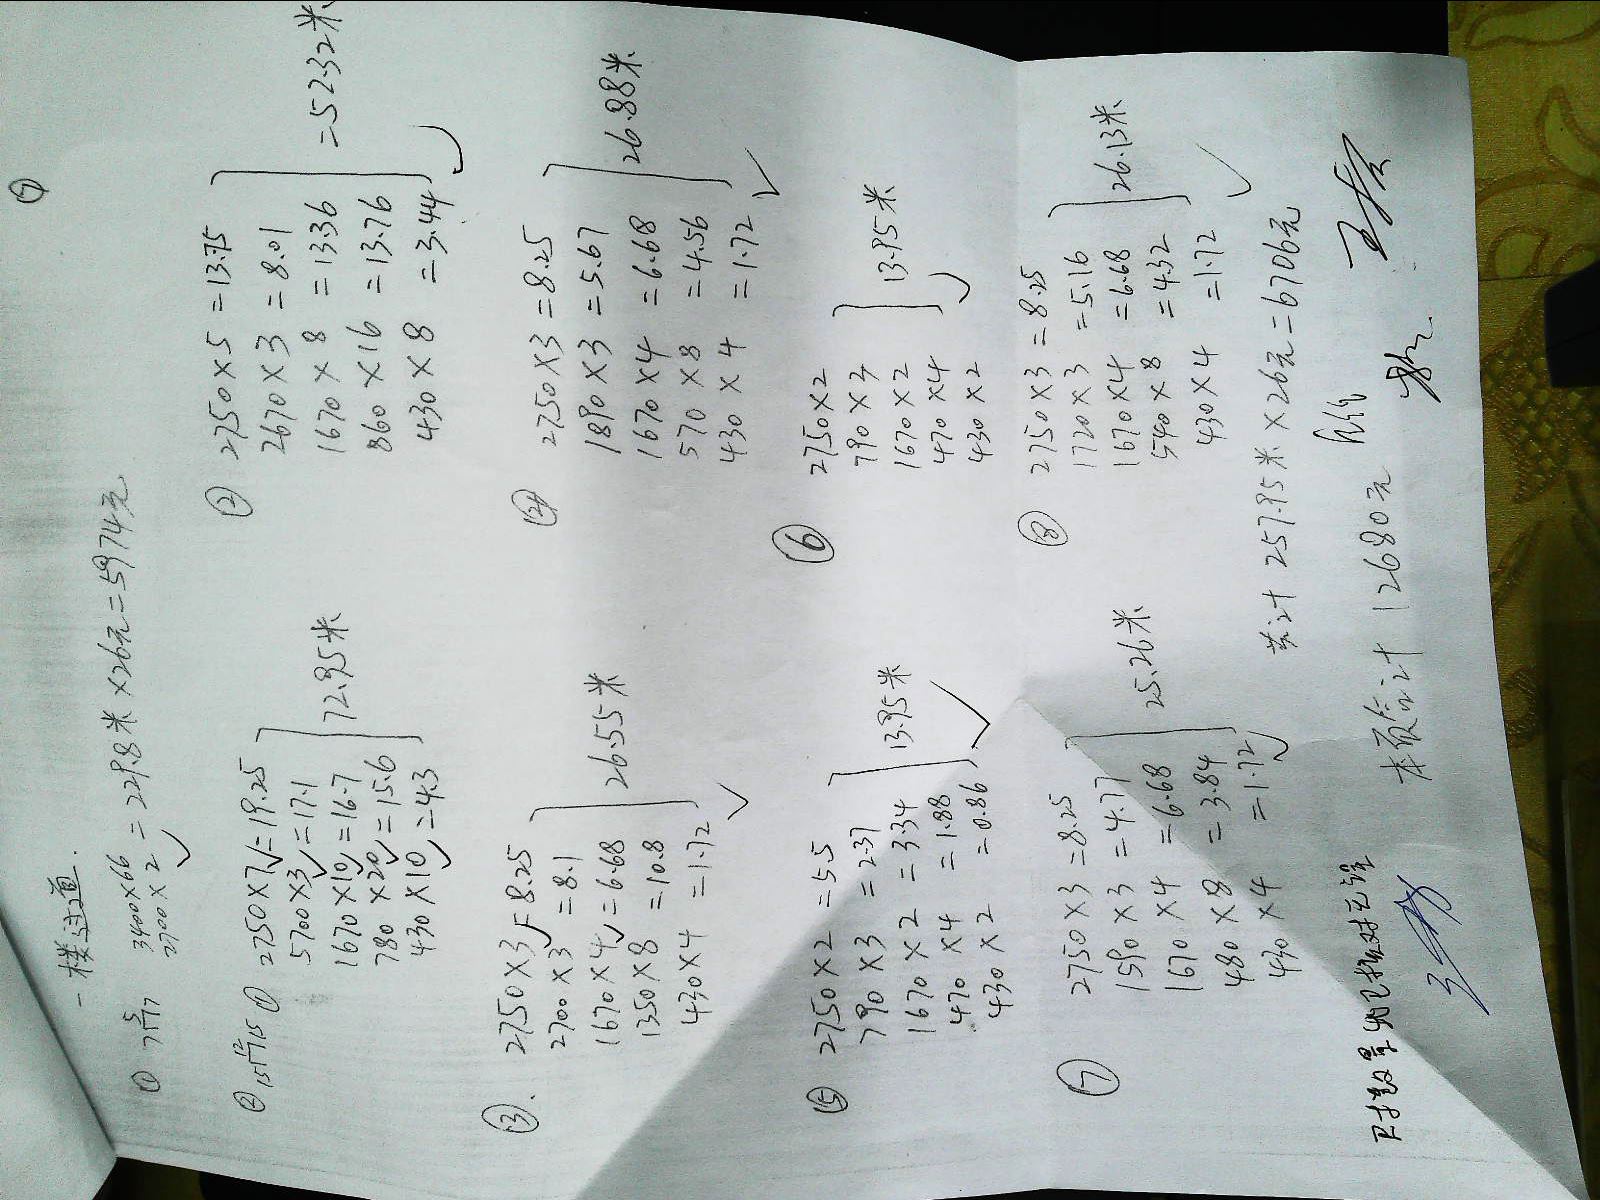 ⑦
一楼过道
① 7 5 7 3400×66
2700×2 = 229.8米×26元=5974元
② 15 12 15 ① 2750×7=19.25
5700×3=17.1
1670×10=16.7
780×20=15.6
430×10=4.3
72.95米
② 2750×5=13.75
2670×3=8.01
1670×8=13.36
860×16=13.76
430×8=3.44
=52.32米
③. 2750×3=8.25
2700×3=8.1
1670×4=6.68
1350×8=10.8
430×4=1.72
26.55米
④ 2750×3=8.25
1890×3=5.67
1670×4=6.68
570×8=4.56
430×4=1.72
26.88米
⑤ 2750×2=5.5
790×3=2.37
1670×2=3.34
470×4=1.88
430×2=0.86
13.95米
⑥ 2750×2
790×3
1670×2
470×4
430×2
13.95米
⑦ 2750×3=8.25
1590×3=4.77
1670×4=6.68
480×8=3.84
430×4=1.72
25.26米
⑧ 2750×3=8.25
1720×3=5.16
1670×4=6.68
540×8=4.32
430×4=1.72
26.13米
共计257.95米×26元=6706元
本页合计12680元
尺寸数量